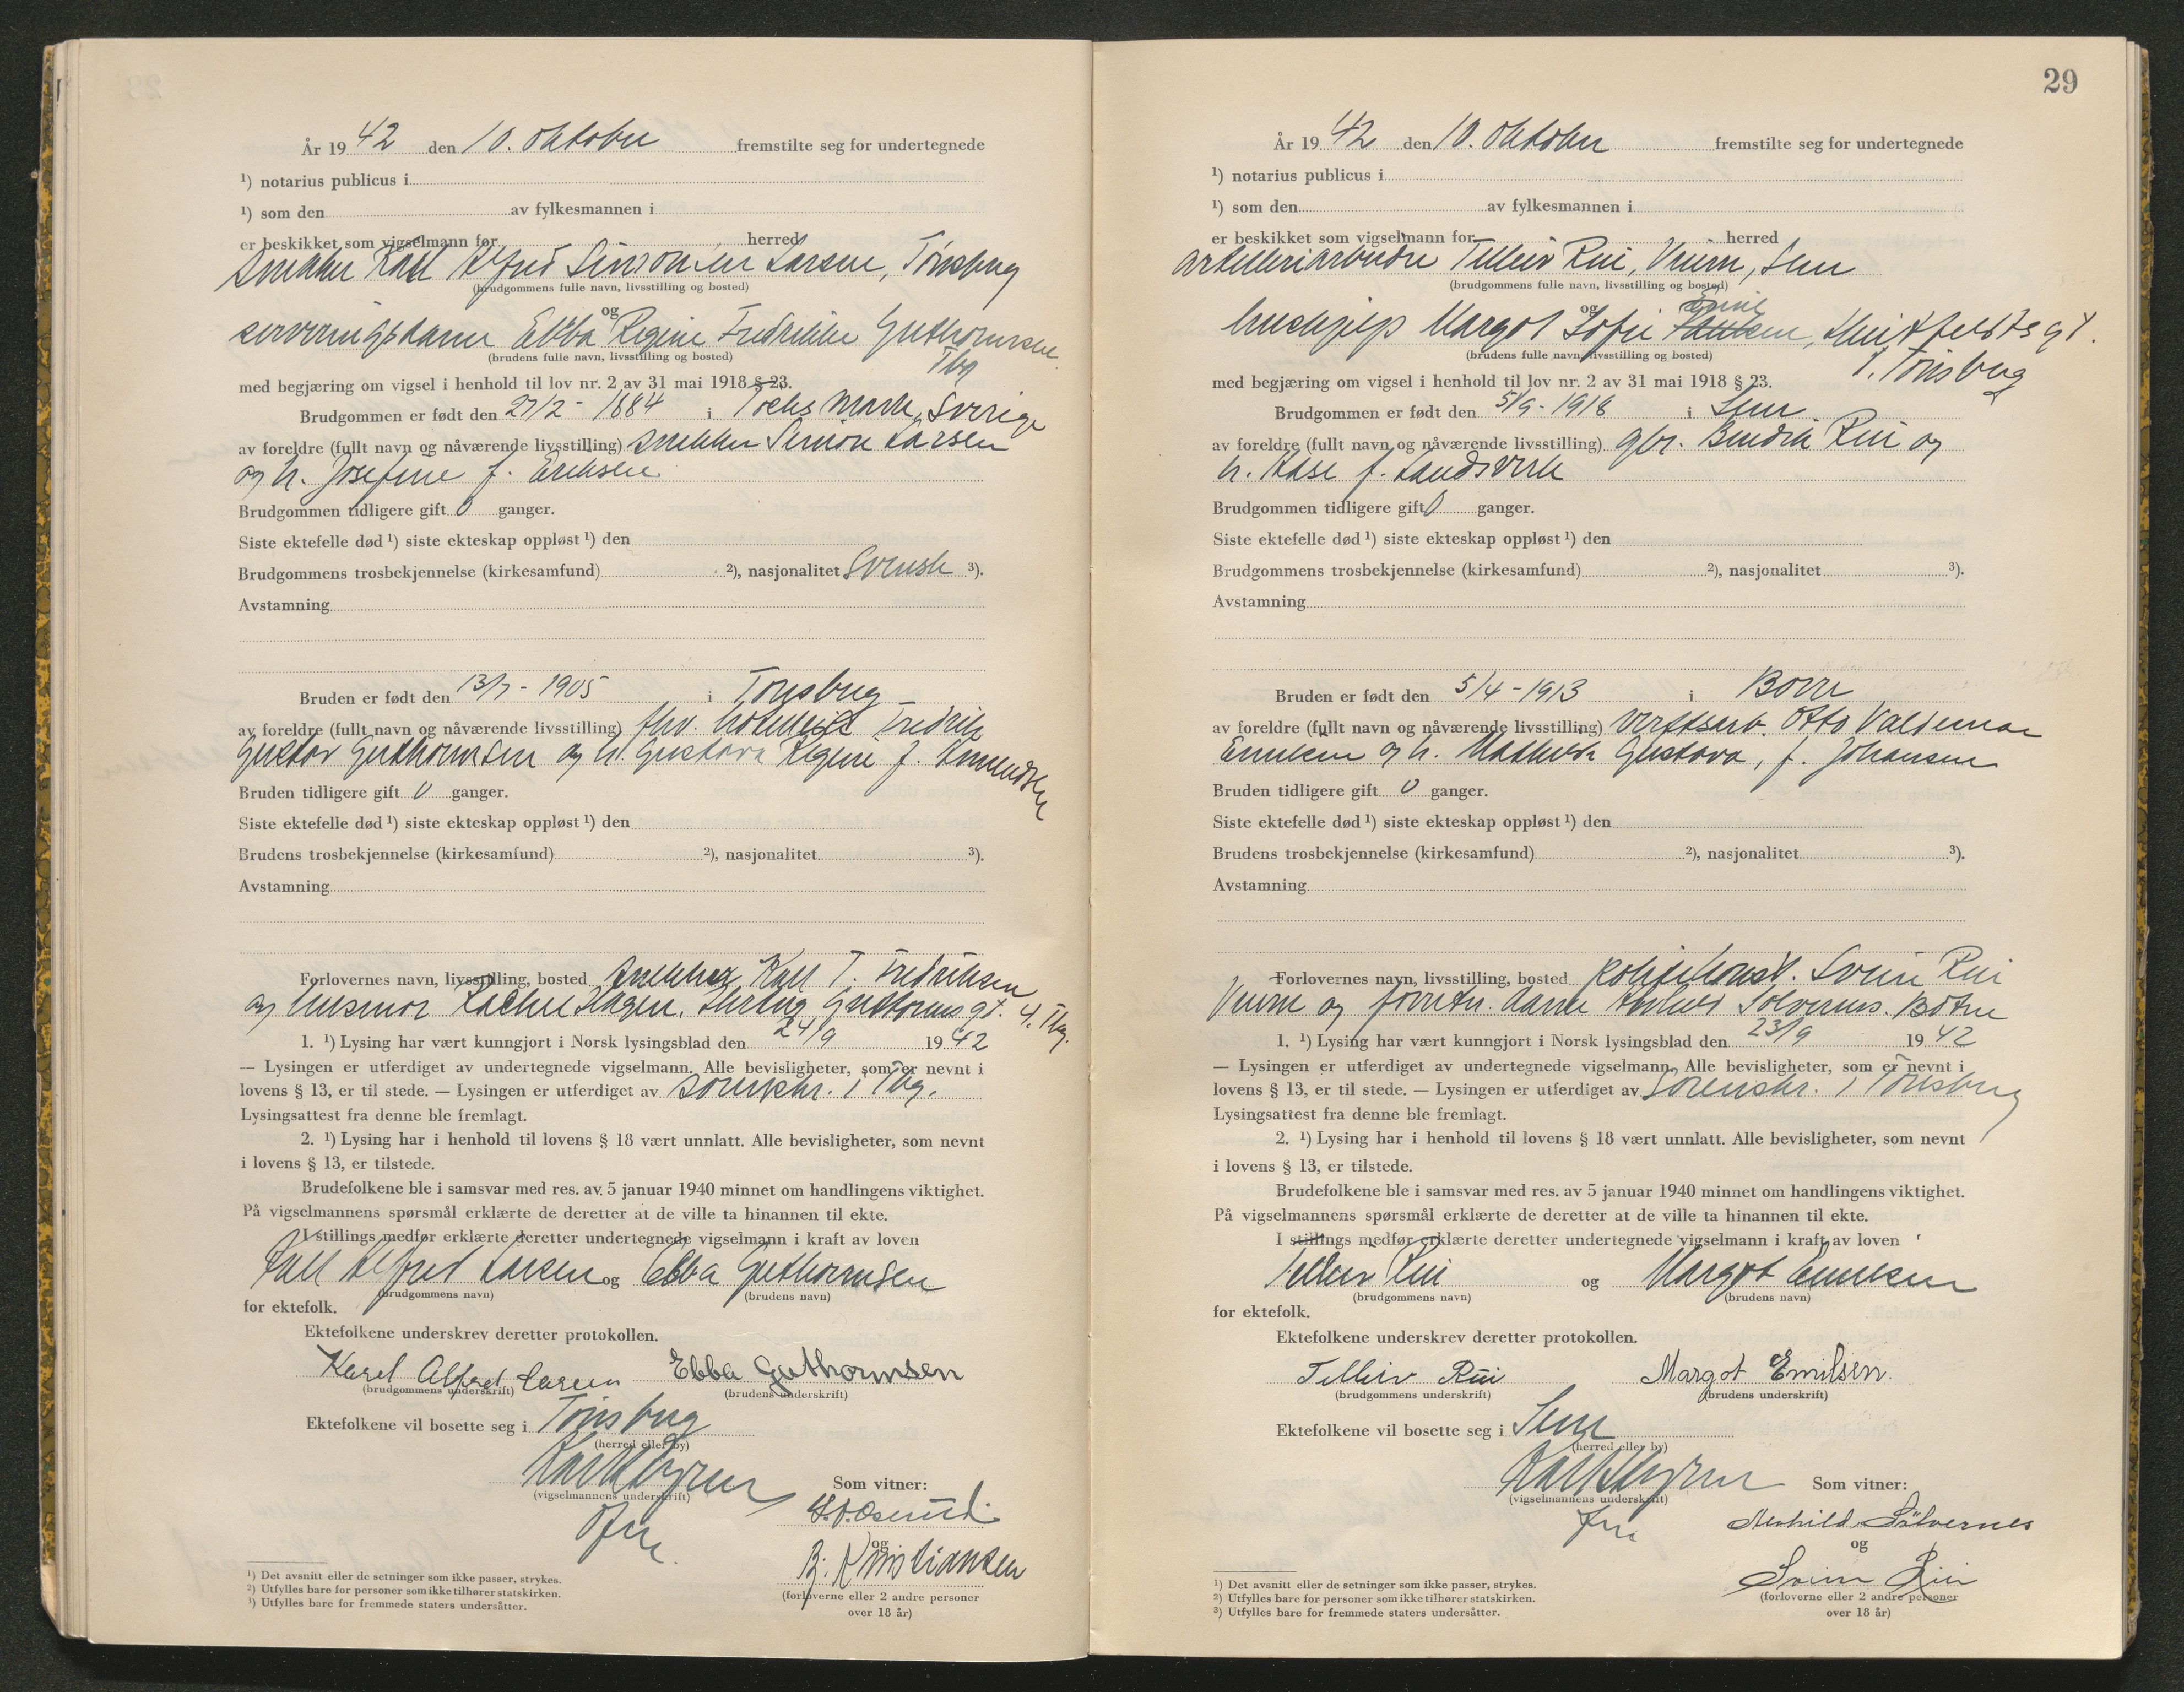 År 19 42 den 10. oktober fremstilte seg for undertegnede
¹) notarius publicus i
¹) som den av fylkesmannen i
er beskikket som vigselmann for herred
snekker Karl Alfred Simonsen Larsen, Tønsberg
(brudgommens fulle navn, livsstilling og bosted)
og
serveringsdame Ebba Regine Fredrikke Guthormsen
(brudens fulle navn, livsstilling og bosted) Tbg
med begjæring om vigsel i henhold til lov nr. 2 av 31 mai 1918 § 23.
Brudgommen er født den 27/2 - 1884 i Tocksmark, Sverige
av foreldre (fullt navn og nåværende livsstilling) snekker Simon Larsen
og h. Josefine f. Eriksen
Brudgommen tidligere gift 0 ganger.
Siste ektefelle død ¹) siste ekteskap oppløst ¹) den
Brudgommens trosbekjennelse (kirkesamfund) ²), nasjonalitet Svensk ³).
Avstamning
Bruden er født den 13/7 - 1905 i Tønsberg
av foreldre (fullt navn og nåværende livsstilling) fhv. Fredrik
Gustav Guthormsen og h. Gustava Regine f. Amundsen
Bruden tidligere gift 0 ganger.
Siste ektefelle død ¹) siste ekteskap oppløst ¹) den
Brudens trosbekjennelse (kirkesamfund) ²), nasjonalitet ³).
Avstamning
Forlovernes navn, livsstilling, bosted snekker Karl T. Fredriksen
og husmor Hagen. Hertug Guthormsgt. 4. Tbg.
1. ¹) Lysing har vært kunngjort i Norsk lysingsblad den 24/9 19 42
— Lysingen er utferdiget av undertegnede vigselmann. Alle bevisligheter, som er nevnt i
lovens § 13, er til stede. — Lysingen er utferdiget av sorenskr. i Tbg.
Lysingsattest fra denne ble fremlagt.
2. ¹) Lysing har i henhold til lovens § 18 vært unnlatt. Alle bevisligheter, som nevnt
i lovens § 13, er tilstede.
Brudefolkene ble i samsvar med res. av 5 januar 1940 minnet om handlingens viktighet.
På vigselmannens spørsmål erklærte de deretter at de ville ta hinannen til ekte.
I stillings medfør erklærte deretter undertegnede vigselmann i kraft av loven
Karl Alfred Larsen og Ebba Guthormsen
(brudgommens navn) (brudens navn)
for ektefolk.
Ektefolkene underskrev deretter protokollen.
Karl Alfred Larsen Ebba Guthormsen
(brudgommens underskrift) (brudens underskrift)
Ektefolkene vil bosette seg i Tønsberg
(herred eller by)
(vigselmannens underskrift)
Som vitner:
og
B. Kristiansen
(forloverne eller 2 andre personer
over 18 år)
¹) Det avsnitt eller de setninger som ikke passer, strykes.
²) Utfylles bare for personer som ikke tilhører statskirken.
³) Utfylles bare for fremmede staters undersåtter.
29
År 19 42 den 10. oktober fremstilte seg for undertegnede
¹) notarius publicus i
¹) som den av fylkesmannen i
er beskikket som vigselmann for herred
artilleriarbeider Telleiv Rui, Sem
(brudgommens fulle navn, livsstilling og bosted)
og
hushjelp Margot Sofie Emilsen,
(brudens fulle navn, livsstilling og bosted)
Tønsberg
med begjæring om vigsel i henhold til lov nr. 2 av 31 mai 1918 § 23.
Brudgommen er født den 5/9 - 1918 i Sem
av foreldre (fullt navn og nåværende livsstilling) gbr. Bendik Rui og
h. Aase f. Landsverk
Brudgommen tidligere gift 0 ganger.
Siste ektefelle død ¹) siste ekteskap oppløst ¹) den
Brudgommens trosbekjennelse (kirkesamfund) ²), nasjonalitet ³).
Avstamning
Bruden er født den 5/4 - 1913 i Borre
av foreldre (fullt navn og nåværende livsstilling) verftsarb. Otto Valdemar
Emilsen og h. Mathilde Gustava, f. Johansen
Bruden tidligere gift 0 ganger.
Siste ektefelle død ¹) siste ekteskap oppløst ¹) den
Brudens trosbekjennelse (kirkesamfund) ²), nasjonalitet ³).
Avstamning
Forlovernes navn, livsstilling, bosted politikonst. Svein Rui
og forretn. dame Sølvernes. Botne
1. ¹) Lysing har vært kunngjort i Norsk lysingsblad den 23/9 19 42
— Lysingen er utferdiget av undertegnede vigselmann. Alle bevisligheter, som er nevnt i
lovens § 13, er til stede. — Lysingen er utferdiget av Sorenskr. i Tønsberg
Lysingsattest fra denne ble fremlagt.
2. ¹) Lysing har i henhold til lovens § 18 vært unnlatt. Alle bevisligheter, som nevnt
i lovens § 13, er tilstede.
Brudefolkene ble i samsvar med res. av 5 januar 1940 minnet om handlingens viktighet.
På vigselmannens spørsmål erklærte de deretter at de ville ta hinannen til ekte.
I stillings medfør erklærte deretter undertegnede vigselmann i kraft av loven
Telleiv Rui og Margot Emilsen
(brudgommens navn) (brudens navn)
for ektefolk.
Ektefolkene underskrev deretter protokollen.
Telleiv Rui Margot Emilsen.
(brudgommens underskrift) (brudens underskrift)
Ektefolkene vil bosette seg i Sem
(herred eller by)
(vigselmannens underskrift)
Som vitner:
Sølvernes
og
Svein Rui
(forloverne eller 2 andre personer
over 18 år)
¹) Det avsnitt eller de setninger som ikke passer, strykes.
²) Utfylles bare for personer som ikke tilhører statskirken.
³) Utfylles bare for fremmede staters undersåtter.